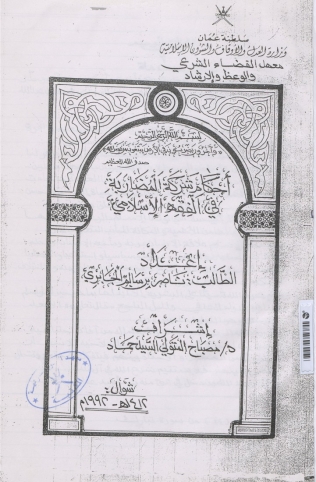 سلطنة عمان
وزارة العدل والأوقاف والشئون الإسلامية
معهد القضاء الشرعي
والوعظ والإرشاد
بسم الله الرحمن الرحيم
صدق الله العظيم
أحكام شركة المضاربة
في الفقه الإسلامي
إعداد
الطالب: ناصر بن سالم
إشراف
د/ مصباح المتولي السيد حماد
شوال
١٤١٢هـ - ١٩٩٢م